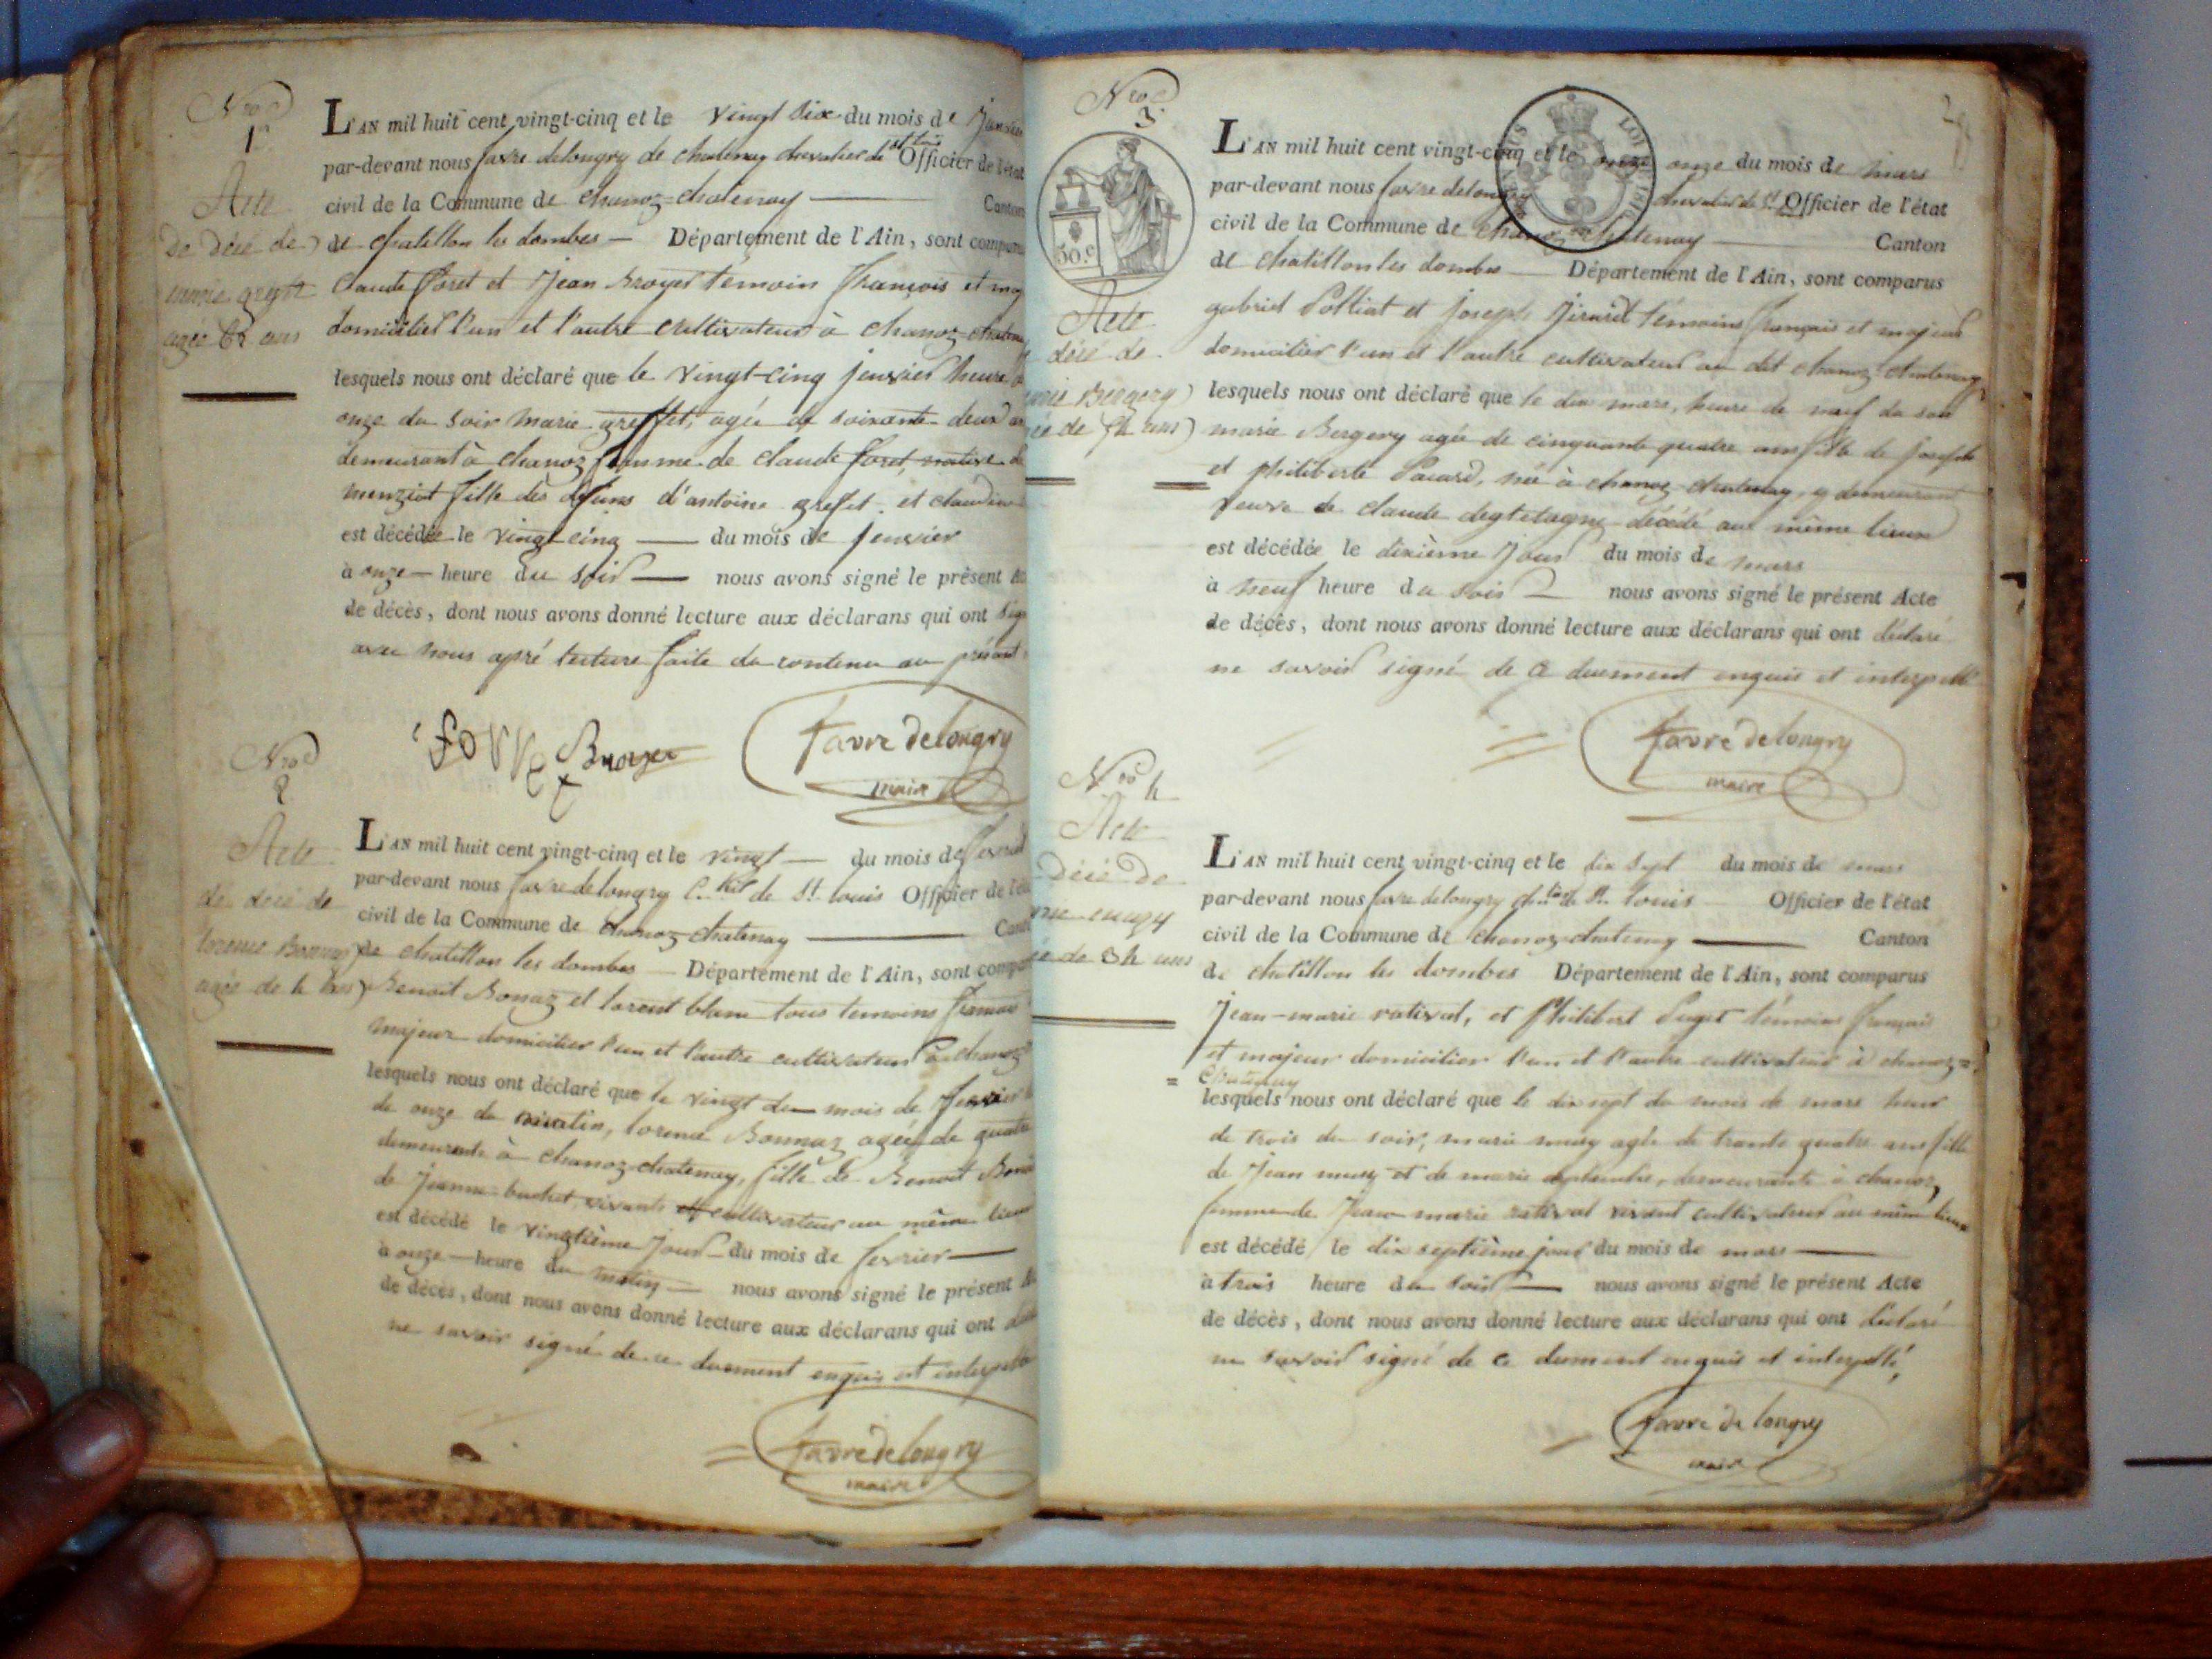 Nro
1er
Acte
de décé de
marie greffet
agée 62 ans
L'AN mil huit cent vingt-cinq et le vingt six du mois de Janvier
par-devant nous favre delongry de chatenay chevalier de st Louis Officier de l'état
civil de la Commune de Chanoz-chatenay Canton
de chatillon les dombes — Département de l'Ain, sont comparus
Claude foret et Jean Broyer temoin françois et maj
domicilier l'un et l'autre cultivateur à chanoz chatenay
lesquels nous ont déclaré que le vingt-cinq jenvier heure
onze du soir marie greffet, agée de soixante deux an
demeurant à chanoz femme de claude foret, native de
meuziat fille des defuns d'antoine grefet et claudine
est décédée le vingt cinq — du mois de jenvier
à onze — heure du soir — nous avons signé le présent Ac
de décès, dont nous avons donné lecture aux déclarans qui ont sign
avec nous apré lecture faite du contenu au présant
Broyer favre delongry
maire
Nro
2
Acte
de décé de
lorence Bonnaz
agée de 4 ans
L'AN mil huit cent vingt-cinq et le vingt — du mois de fevrier
par-devant nous favre de longry C. de St. louis Officier de l'éta
civil de la Commune de chanoz-chatenay Cant
de chatillon les dombes — Département de l'Ain, sont compar
Benoit Bonaz et lorent blanc tous temoins francais
majeur domicilier l'un et l'autre cultivateur à chanoz
lesquels nous ont déclaré que le vingt du mois de fevrier
de onze du matin, lorence Bonnaz agée de quatre
demeurante à chanoz-chatenay, fille de Benoit Bonaz
de Jeanne buchet, vivants cultivateur au même lieux
est décédé le vingtième jour du mois de fevrier —
à onze — heure du matin — nous avons signé le présent A
de décès, dont nous avons donné lecture aux déclarans qui ont décla
ne savoir signé de ce duement enquis et interpellé
favre de longry
maire
Nro
3
50.c
Acte
décé de
marie Bergery
ée de 54 ans
L'AN mil huit cent vingt-cinq et le onze du mois de mars
par-devant nous favre delongry chevalier de St Officier de l'état
civil de la Commune de Chanoz chatenay Canton
de chatillon les dombes — Département de l'Ain, sont comparus
gabriel Polliat et Joseph Jirard témoins français et majeur
domicilier l'un et l'autre cultivateur au dit chanoz-chatenay
lesquels nous ont déclaré que le dix mars, heure de neuf du soir
marie Bergery agée de cinquante quatre ans fille de Joseph
et philiberte Pacard, née à chanoz-chatenay, y demeurant
veuve de claude degletagne décédé aux même lieux
est décédée le dixième jour du mois de mars
à neuf heure du soir — nous avons signé le présent Acte
de décès, dont nous avons donné lecture aux déclarans qui ont déclaré
ne savoir signé de ce duement enquis et interpellé
favre delongry
maire
Nro 4
Acte
décé de
rie mugy
ée de 34 ans
L'AN mil huit cent vingt-cinq et le dix sept du mois de mars
par-devant nous favre delongry de St. louis Officier de l'état
civil de la Commune de chanoz-chatenay — Canton
de chatillon les dombes Département de l'Ain, sont comparus
Jean-marie rativet, et philibert Puget témoins français
et majeur domicilier l'un et l'autre cultivateur à chanoz=
= chatenay
lesquels nous ont déclaré que le dix sept du mois de mars heur
de trois du soir, marie mugy agée de trante quatre ans fille
de Jean mugy et de marie, demeurante à chanoz,
femme de Jean marie rativat vivant cultivateur au même lieux
est décédé le dix septième jour du mois de mars —
à trois heure du soir — nous avons signé le présent Acte
de décès, dont nous avons donné lecture aux déclarans qui ont déclaré
ne savoir signé de ce dument enquis et interpellé,
favre de longry
maire